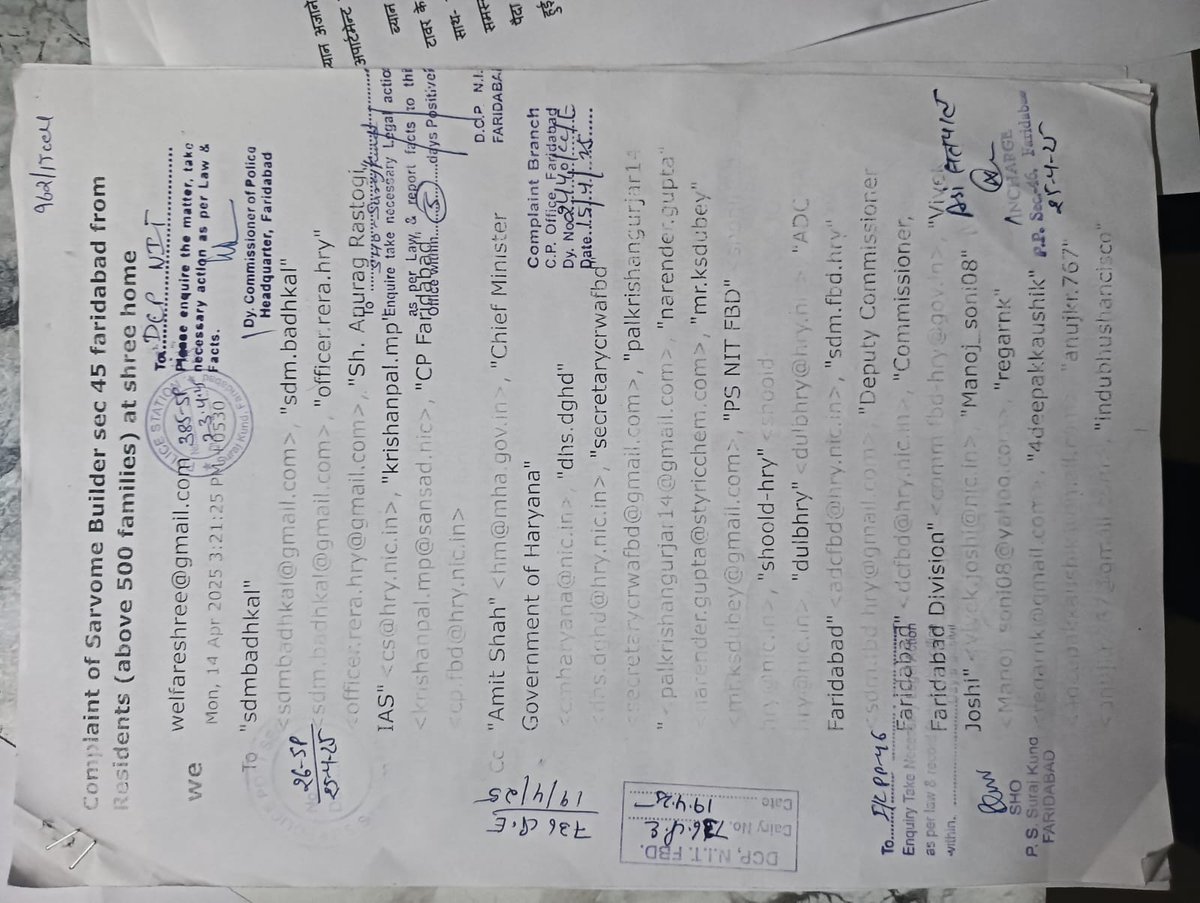 962/
Complaint of Sarvome Builder sec 45 faridabad from
Residents (above 500 families) at shree home
we
welfareshree@gmail.com
Mon, 14 Apr 2025 3:21:25 PM +0530
To "sdmbadhkal"
<sdmbadhkal@gmail.com>, "sdm.badhkal"
<sdm.badhkal@gmail.com>, "officer.rera.hry"
<officer.rera.hry@gmail.com>, "Sh. Anurag Rastogi,
IAS" <cs@hry.nic.in>, "krishanpal.mp"
<krishanpal.mp@sansad.nic>, "CP Faridabad"
<cp.fbd@hry.nic.in>
Cc "Amit Shah" <hm@mha.gov.in>, "Chief Minister
Government of Haryana"
<cmharyana@nic.in>, "dhs.dghd"
<dhs.dghd@hry.nic.in>, "secretarycrwafbd"
<secretarycrwafbd@gmail.com>, "palkrishangurjar14
" <palkrishangurjar14@gmail.com>, "narender.gupta"
<narender.gupta@styricchem.com>, "mr.ksdubey"
<mr.ksdubey@gmail.com>, "PS NIT FBD"
"shoold-hry" <shoold
hry@nic.in>, "dulbhry" <dulbhry@hry.ni "ADC
Faridabad" <adcfbd@hry.nic.in>, "sdm.fbd.hry"
<sdm.fbd.hry@gmail.com> "Deputy Commissioner
Faridabad" <dcfbd@hry.nic.in>, "Commissioner,
Faridabad Division" "Vivek
Joshi" "Manoj_soni08"
<Manoj_soni08@yahoo.com "regarnk"
<regarnk@gmail.com>, "4deepakkaushik"
"anujkr.767"
"indubhushancisco"
To DCP NIT
Please enquire the matter, take
necessary action as per Law &
Facts.
Dy. Commissioner of Police
Headquarter, Faridabad
POLICE STATION
Suraj Kund, Faridabad
385-5P
To
Enquire take necessary Legal actio
as per Law, & report facts to thi
Office within 5 days Positivel
D.C.P N.I.
FARIDABA
Complaint Branch
C.P. Office, Faridabad
Dy. No.
Date 15/4/25
26-5P
25-4-25
736
19/4/25
DCP, N.I.T. FBD.
Dairy No. 736
Date 19.4.25
To I/C PP-46
Enquiry Take Necessary action
as per law & record
within
SHO
P.S. Suraj Kund
FARIDABAD
ASI सतपाल
INCHARGE
P.P. Sec-46, Faridabad
25-4-25
अपार्टमेन्ट
टावर के
साथ-
समस्
पैदा
हुई